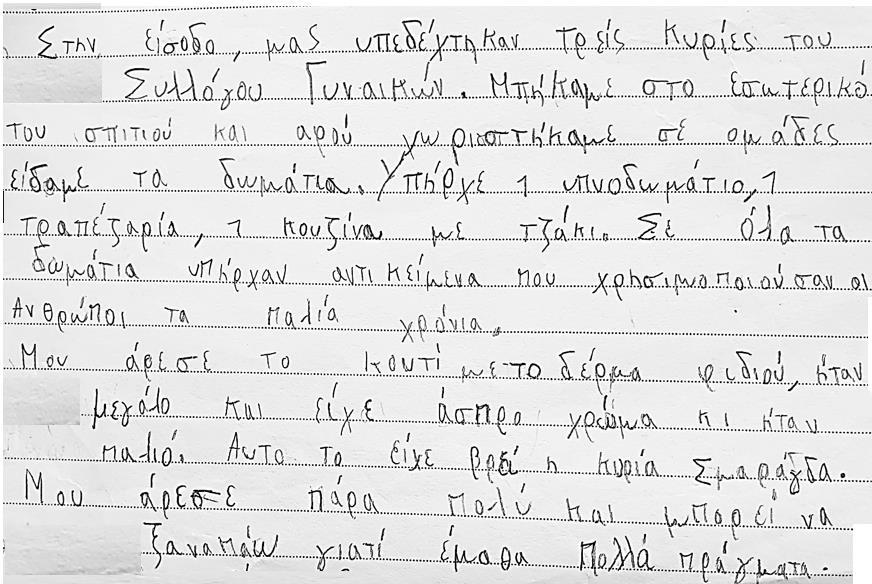 Στην είσοδο, μας υπεδέχτηκαν τρείς κυρίες του
Συλλόγου Γυναικών. Μπήκαμε στο εσωτερικό
του σπιτιού και αφού χωριστήκαμε σε ομάδες
είδαμε τα δωμάτια. Υπήρχε 1 υπνοδωμάτιο, 1
τραπέζαρία, 1 κουζίνα με τζάκι. Σε όλα τα
δωμάτια υπήρχαν αντικείμενα που χρησιμοποιούσαν οι
Ανθρώποι τα παλία χρόνια.
Μου άρεσε το κουτί με το δέρμα φιδιού, ήταν
μεγάλο και είχε άσπρο χρώμα κι ήταν
παλιό. Αυτο το είχε βρεί η κυρία Σμαράγδα.
Μου άρεσε πάρα πολύ και μπορεί να
ξαναπάω γιατί έμαθα πολλά πράγματα.